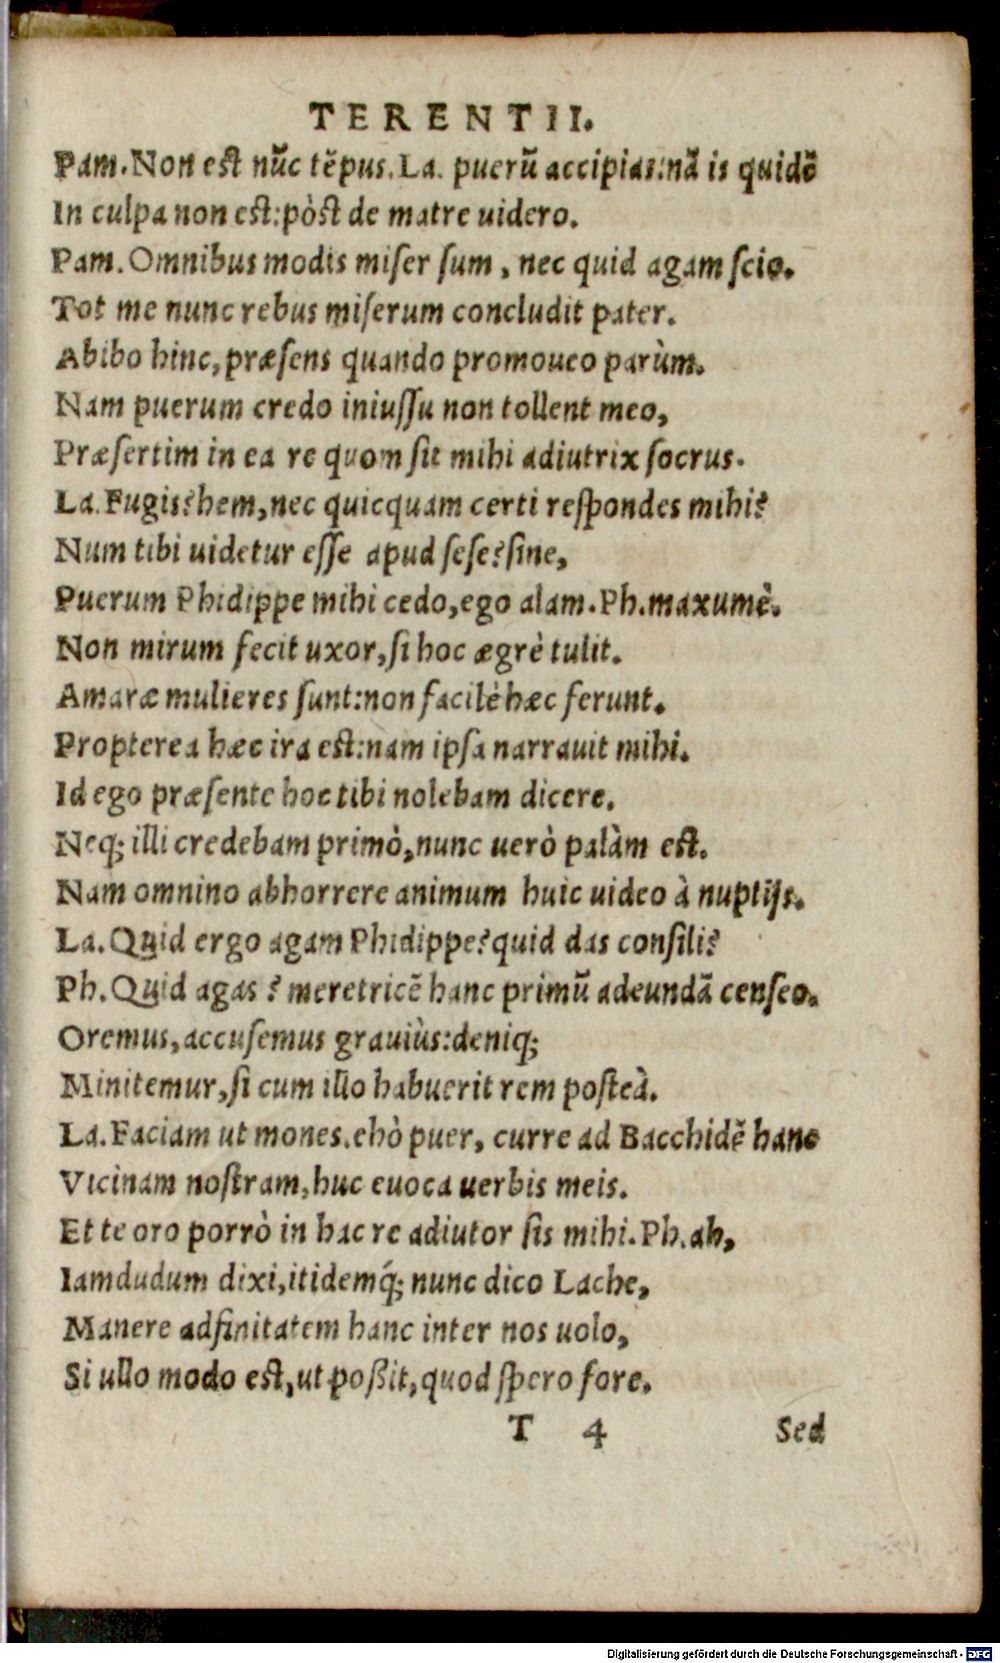 TERENTII.
Pam. Non est nūc tēpus. La. puerū accipias: nā is quidē
In culpa non est: pòst de matre uidero.
Pam. Omnibus modis miser sum, nec quid agam scio.
Tot me nunc rebus miserum concludit pater.
Abibo hinc, præsens quando promoueo parùm.
Nam puerum credo iniussu non tollent meo,
Præsertim in ea re quom sit mihi adiutrix socrus.
La. Fugis? hem, nec quicquam certi respondes mihi?
Num tibi uidetur esse apud sese? sine,
Puerum Phidippe mihi cedo, ego alam. Ph. maxumè.
Non mirum fecit uxor, si hoc ægrè tulit.
Amaræ mulieres sunt: non facilè hæc ferunt.
Propterea hæc ira est: nam ipsa narrauit mihi.
Id ego præsente hoc tibi nolebam dicere.
Neq; illi credebam primò, nunc uerò palàm est.
Nam omnino abhorrere animum huic uideo à nuptijs.
La. Quid ergo agam Phidippe? quid das consili?
Ph. Quid agas? meretricē hanc primū adeundā censeo.
Oremus, accusemus grauiùs: deniq;
Minitemur, si cum illo habuerit rem posteà.
La. Faciam ut mones. ehò puer, curre ad Bacchidē hanc
Vicinam nostram, huc euoca uerbis meis.
Et te oro porrò in hac re adiutor sis mihi. Ph. ah,
Iamdudum dixi, itidemq́; nunc dico Lache,
Manere adfinitatem hanc inter nos uolo,
Si ullo modo est, ut poßit, quod spero fore.
T 4 Sed
Digitalisierung gefördert durch die Deutsche Forschungsgemeinschaft - DFG